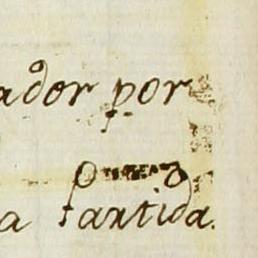 ador por
a Partida.